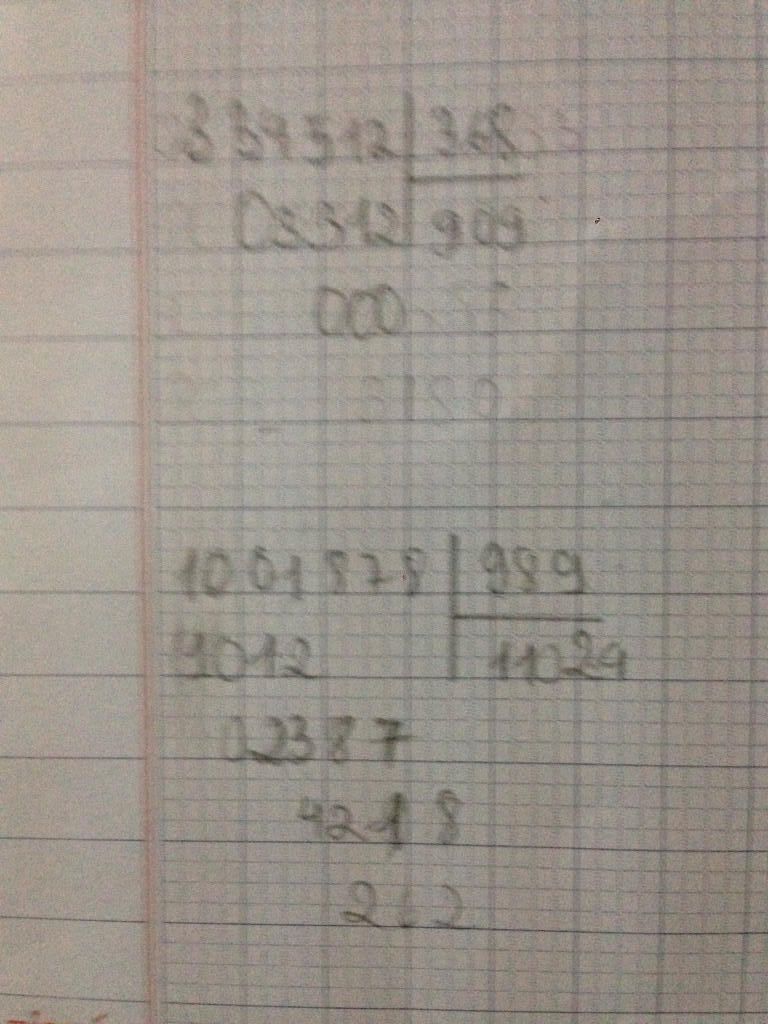 334512 368
03312 909
000
1001878 989
1012 11029
02387
4218
262